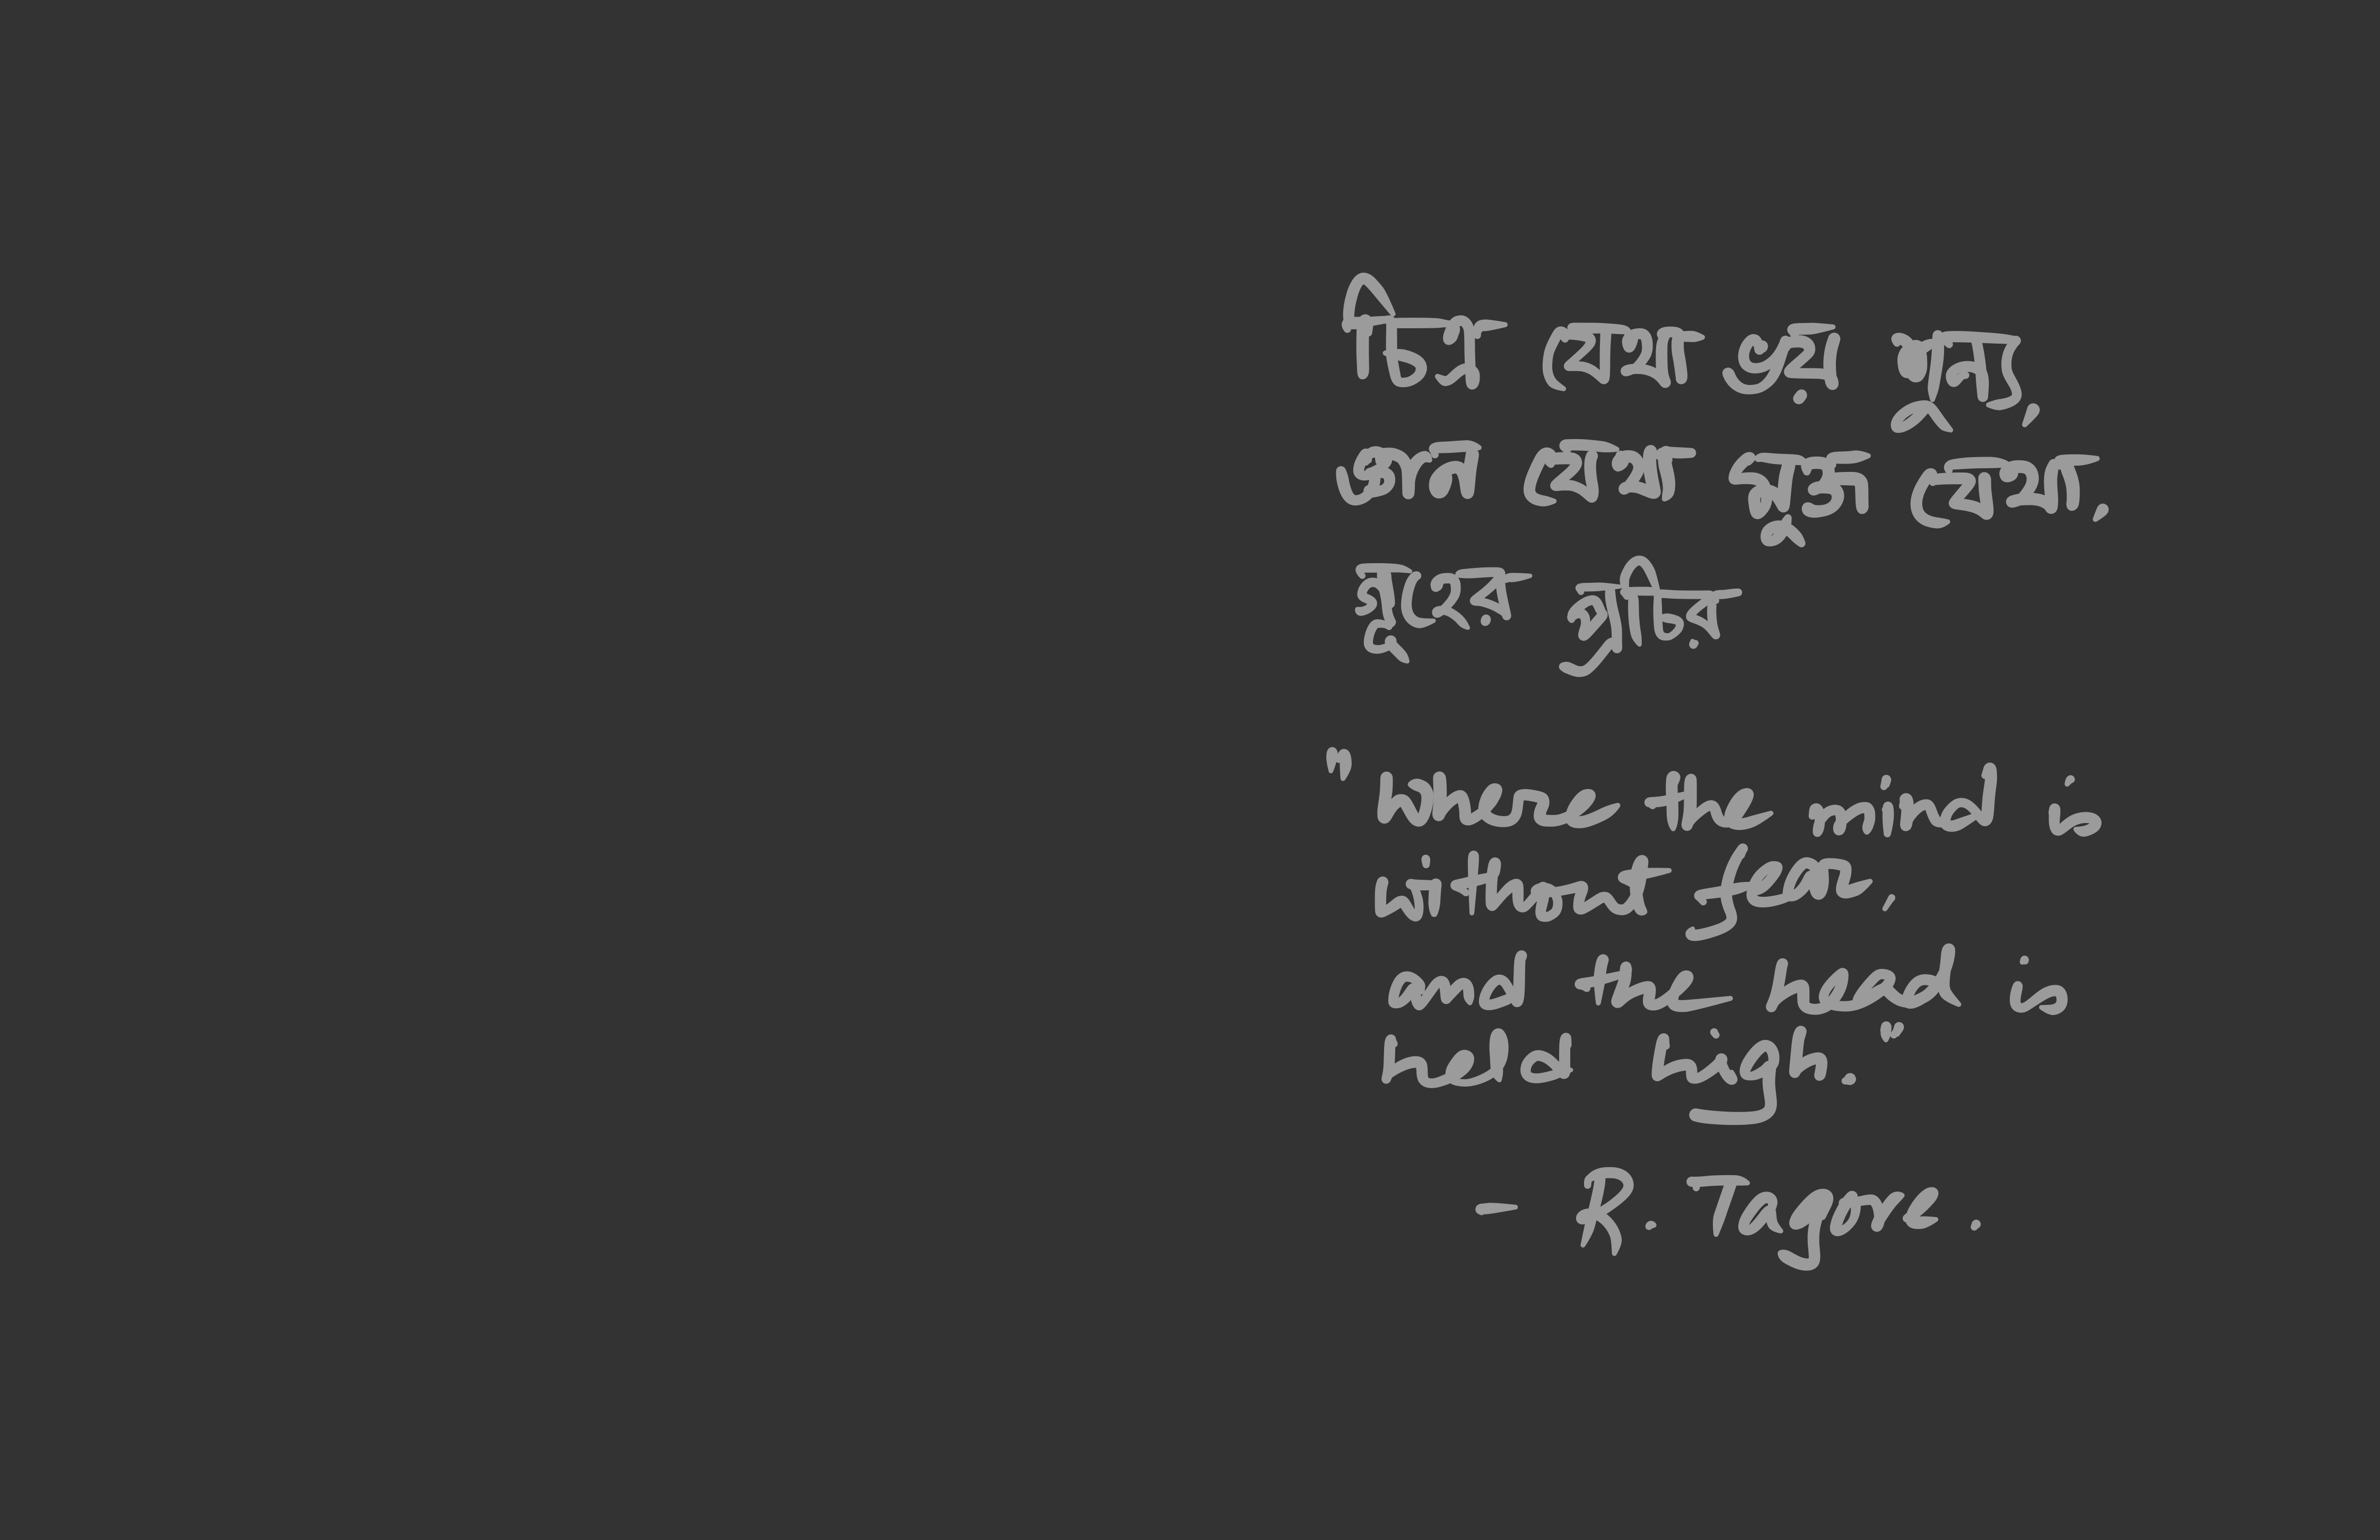 চিত্ত যেথা ভয় শূন্য,
জ্ঞান যেথা মুক্ত যেথা,
গৃহের প্রাচির
"where the mind is
without fear,
and the head is
held high."
- R. Tagore.